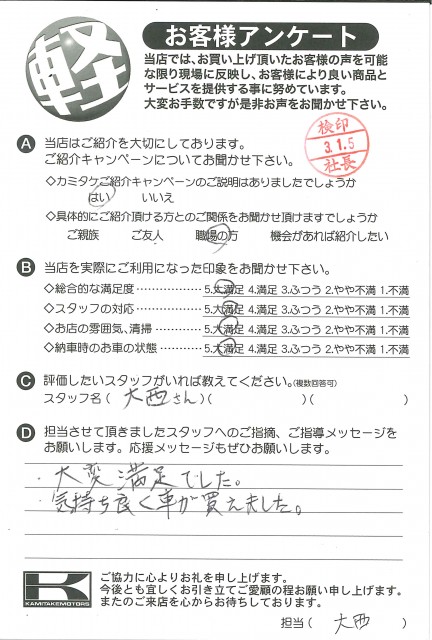 軽
お客様アンケート
当店では、お買い上げ頂いたお客様の声を可能
な限り現場に反映し、お客様により良い商品と
サービスを提供する事に努めています。
大変お手数ですが是非お声をお聞かせ下さい。
検印
3.1.5
社長
A 当店はご紹介を大切にしております。
ご紹介キャンペーンについてお聞かせ下さい。
◇カミタケご紹介キャンペーンのご説明はありましたでしょうか
はい いいえ
◇具体的にご紹介頂ける方とのご関係をお聞かせ頂けますでしょうか
ご親族 ご友人 職場の方 機会があれば紹介したい
B 当店を実際にご利用になった印象をお聞かせ下さい。
◇総合的な満足度 ……………… 5.大満足 4.満足 3.ふつう 2.やや不満 1.不満
◇スタッフの対応 ……………… 5.大満足 4.満足 3.ふつう 2.やや不満 1.不満
◇お店の雰囲気、清掃 ………… 5.大満足 4.満足 3.ふつう 2.やや不満 1.不満
◇納車時のお車の状態 ………… 5.大満足 4.満足 3.ふつう 2.やや不満 1.不満
C 評価したいスタッフがいれば教えてください。(複数回答可)
スタッフ名 ( 大西さん )( )( )
D 担当させて頂きましたスタッフへのご指摘、ご指導メッセージを
お願いします。応援メッセージもぜひお願いします。
・大変満足でした。
・気持ち良く車が買えました。
K
KAMITAKEMOTORS
ご協力に心よりお礼を申し上げます。
今後とも宜しくお引き立てご愛顧の程お願い申し上げます。
またのご来店を心からお待ちしております。
担当 ( 大西 )